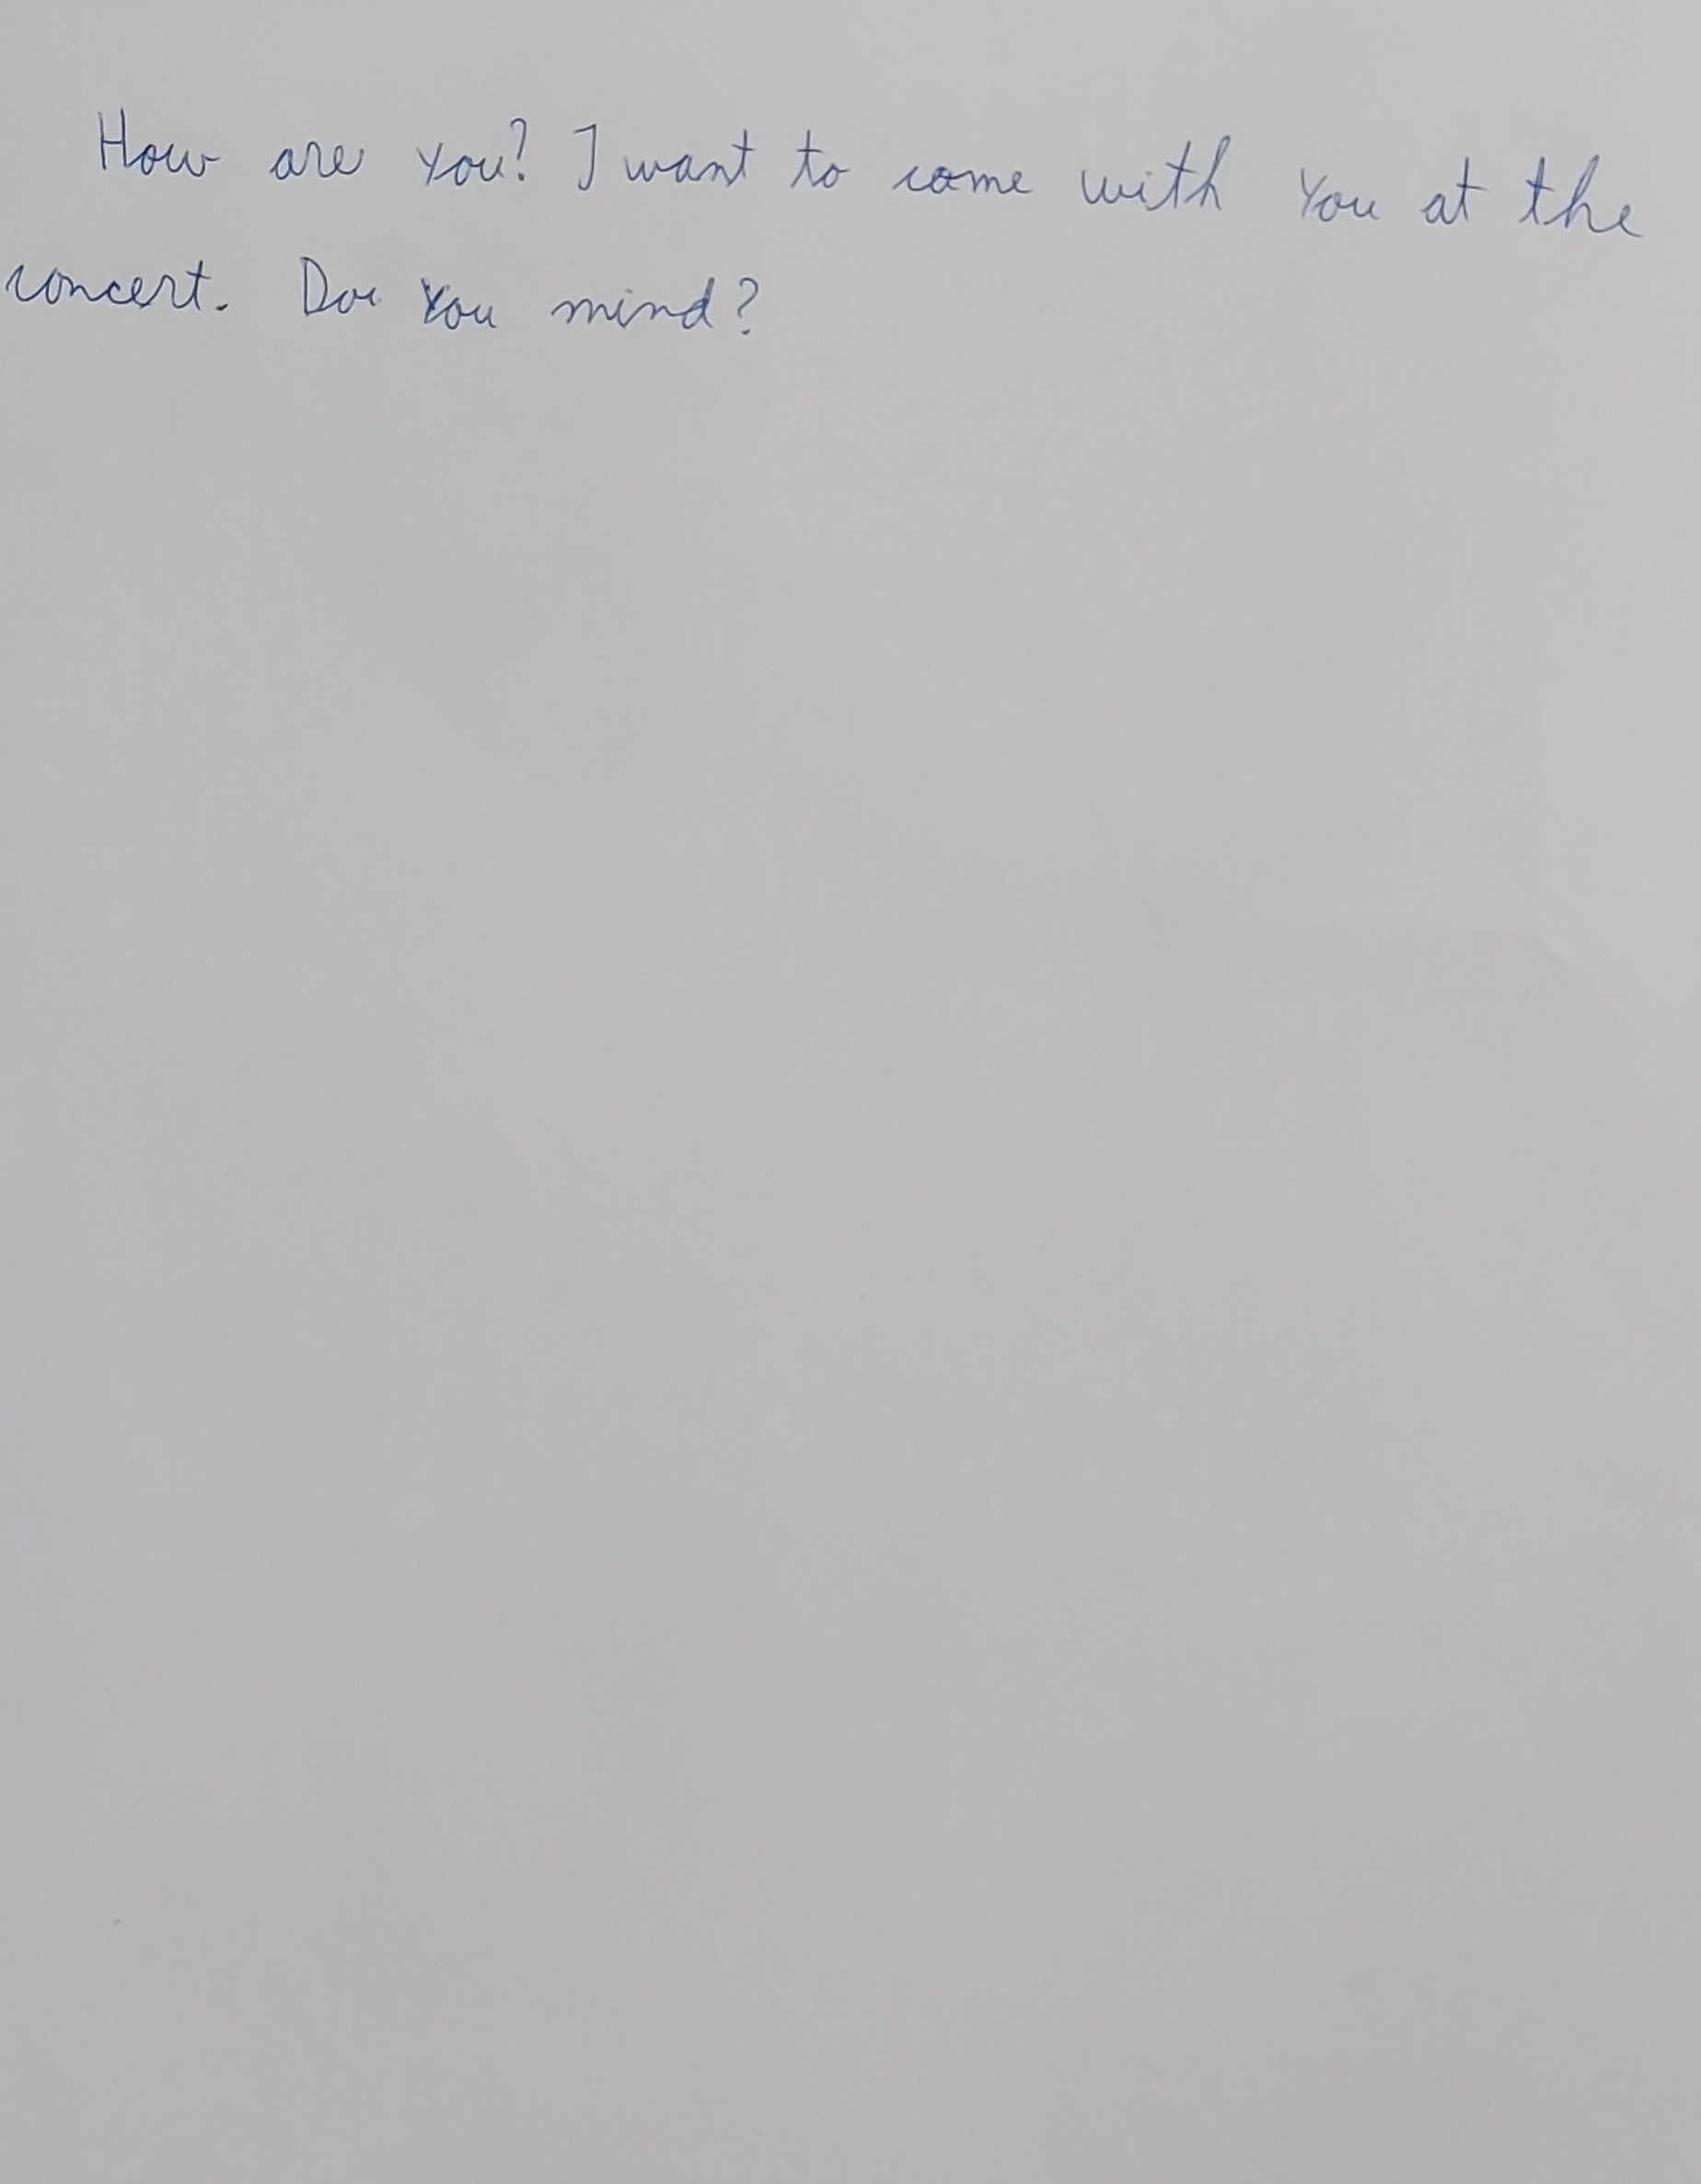 How are you? I want to come with you at the
concert. Do you mind?